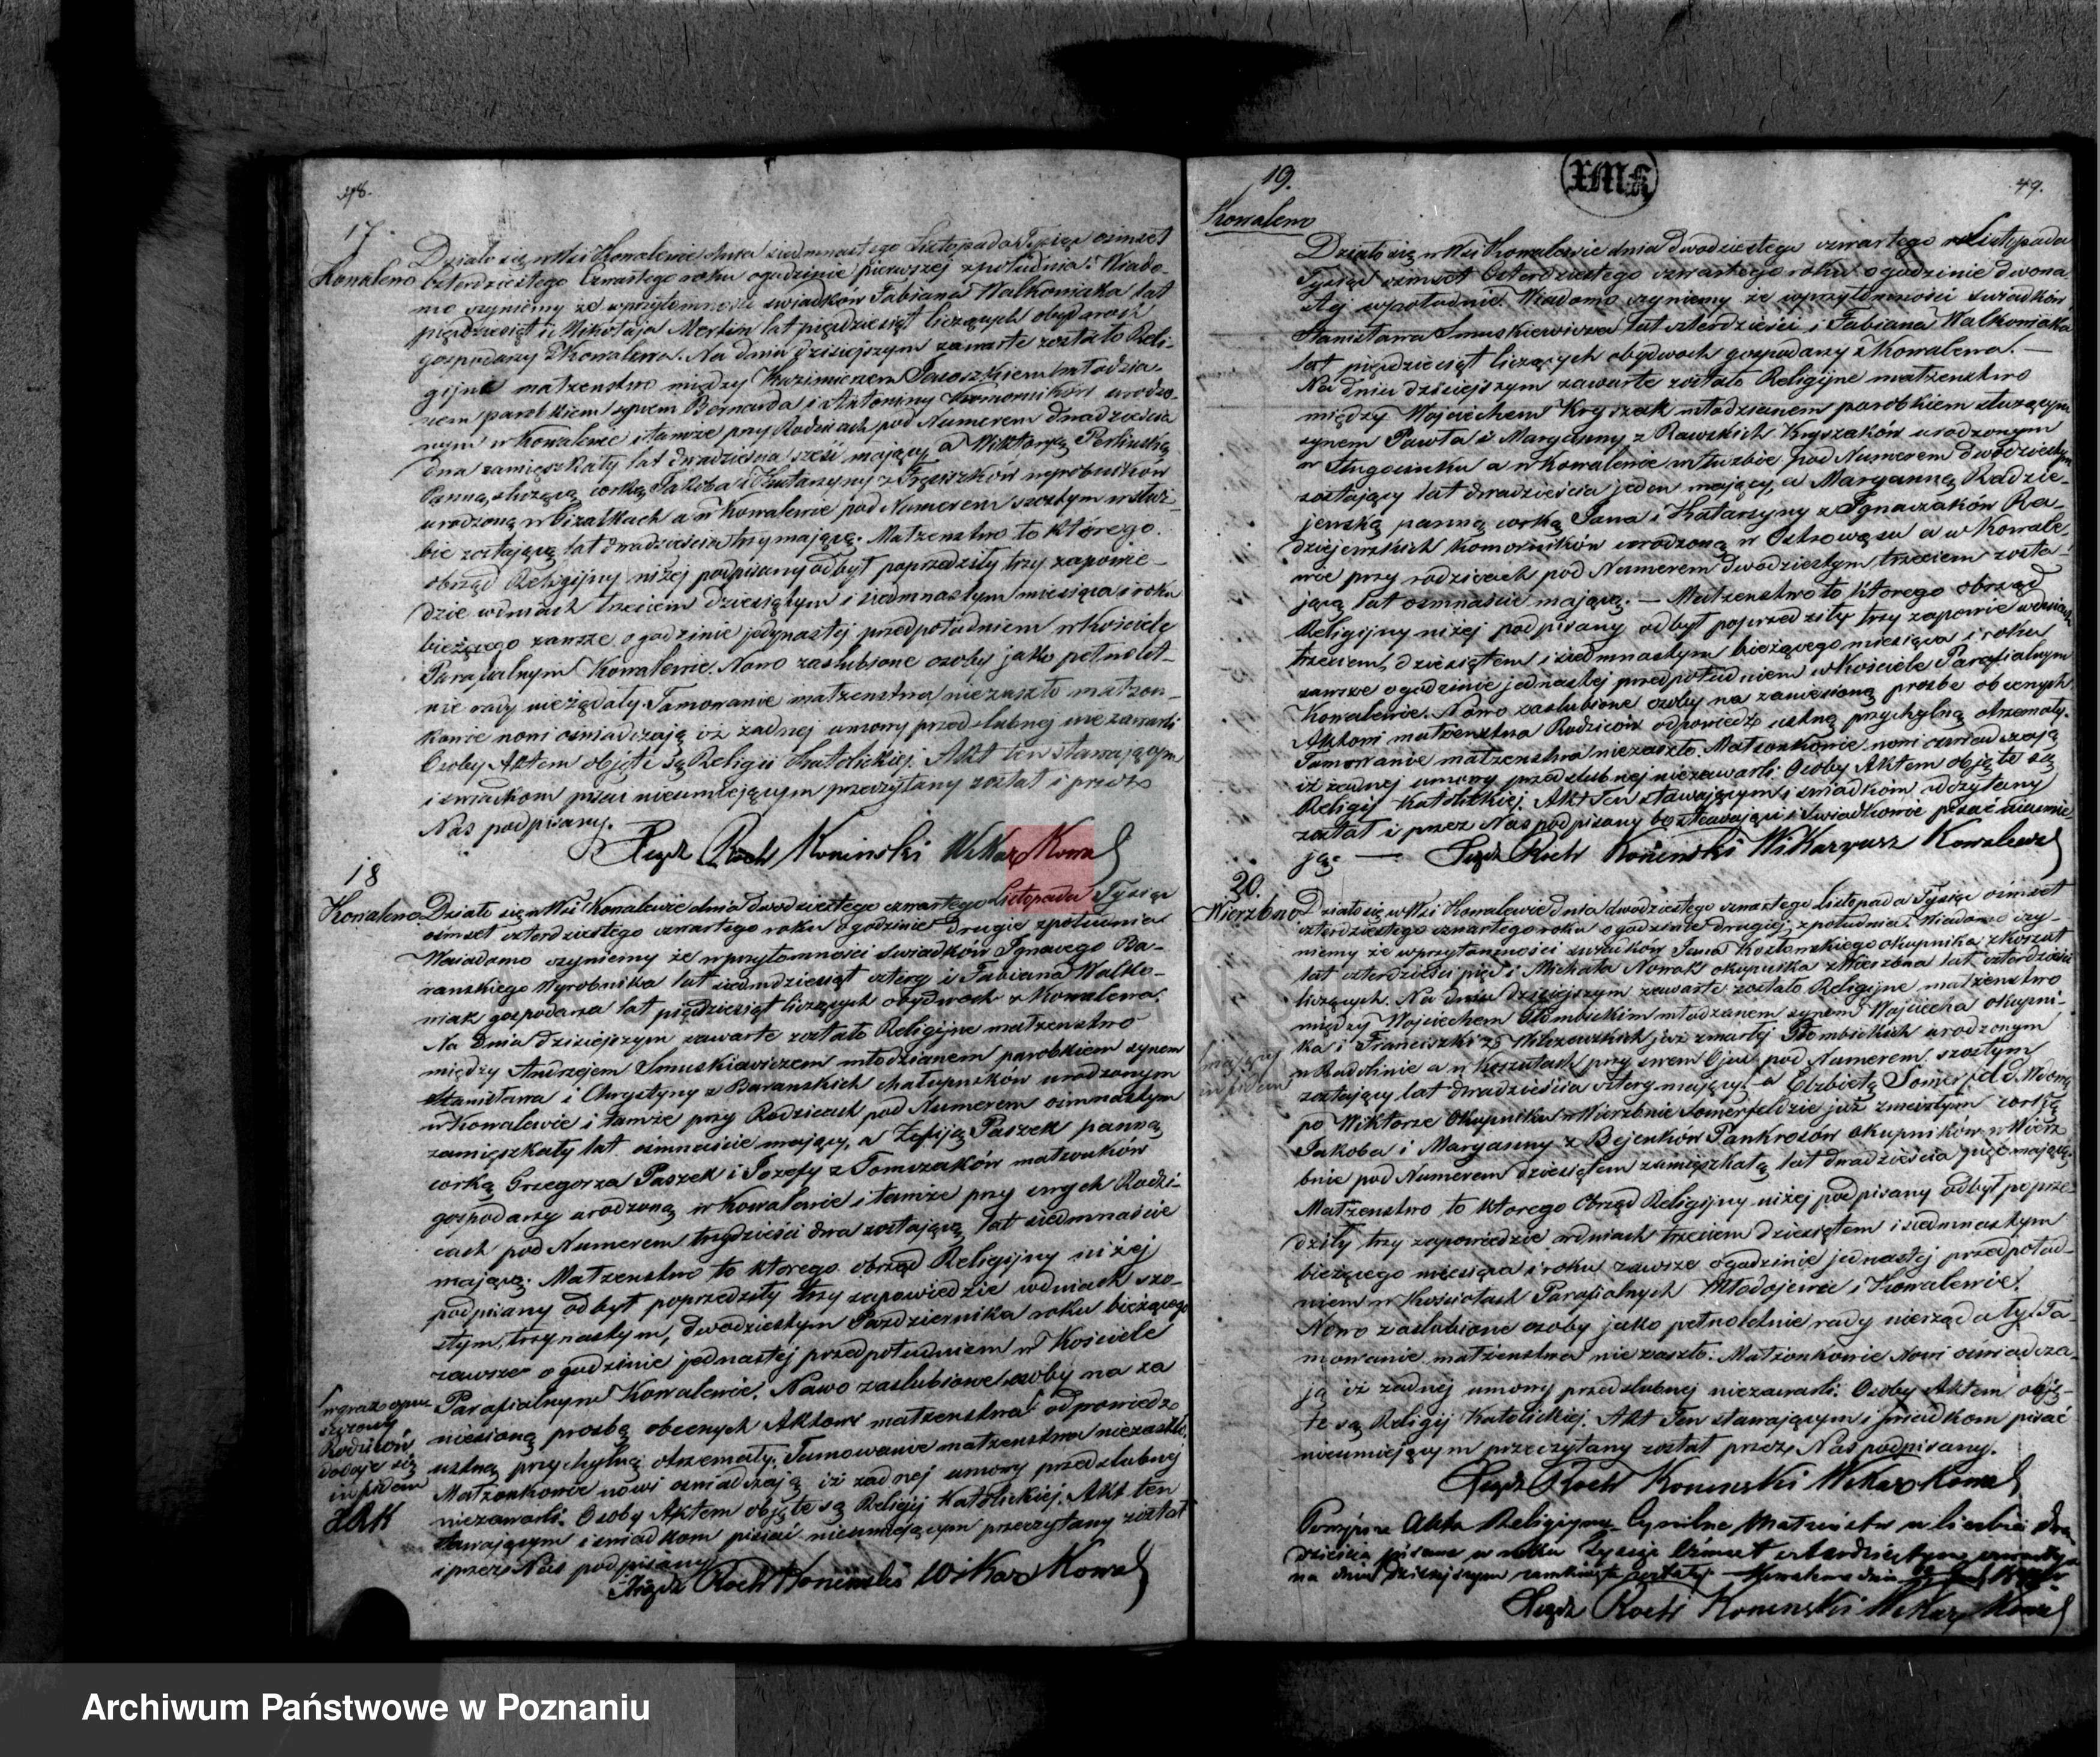 48.
17
Kowalewo
Działo się w Wsi Kowalewie dnia siedmnastego Listopada Tysiąc ośmset
czterdziestego Czwartego roku o godzinie pierwszej z południa. Wiado-
mo czyniemy że w przytomności świadków Fabiana Walkowiaka lat
pięćdziesiąt i Mikołaja Mertin lat pięćdziesiąt liczących obydwoch
gospodarzy z Kowalewa. Na dniu dzisiejszym zawarte zostało Reli-
gijne małżenstwo między Kazimierzem młodzia-
nem parobkiem synem Bernarda i Antoniny urodzo-
nym w Kowalewie i tamże przy Rodzicach pod Numerem dwadzieścia
dwa zamięszkały lat dwadzieścia sześć mający, a Wiktoryą
Panną, służącą corką Jakoba i Katarzyny z wyrobników
urodzoną w Gizałkach a w Kowalewie pod Numerem szostym w służ-
bie zostającą lat dwadzieścia trzy mającą. Małżenstwo to którego
obrząd Religijny niżej podpisany odbył poprzedziły trzy zapowie-
dzie w dniach trzeciem dziesiątym i siedmnastym miesiąca i roku
bieżącego zawsze o godzinie jedynastej przed południem w Kościele
Parafialnym Kowalewie. Nowo zaslubione osoby jako pełnolet-
nie rady nieżądały. Tamowanie małżenstwa niezaszło małżon-
kowie nowi oswiadczają iż żadnej umowy przedslubnej nie zawarli
Osoby Aktem objęte są Religii Katolickiej. Akt ten stawającym
i swiadkom pisać nieumiejącym przeczytany został i przez
Nas podpisany.
Xiądz Roch Koninski Wikar Kowal
18
Kowalewo
Działo się w Wsi Kowalewie dnia dwodziestego czwartego Listopada Tysiąc
ośmset czterdziestego czwartego roku o godzinie drugie z południa
Waiadomo czyniemy że w przytomności swiadków Ignacego Ba-
ranskiego Wyrobnika lat siedmdziesiąt cztery i Fabiana Walko-
wiak gospodarza lat pięćdziesiąt liczących obydwoch z Kowalewa.
Na dniu dzisiejszym zawarte zostało Religijne małżenstwo
między Andrzejem Smuskiewiczem młodzianem parobkiem synem
Stanisława i Chrystyny z Baranskich chałupników urodzonym
w Kowalewie i tamże przy Rodzicach pod Numerem osimnastym
zamięszkały lat osimnaście mający, a Zofiją Paszek panną
corką Grzegorza Paszek i Jozefy z Tomczaków małżonków
gospodarzy urodzoną w Kowalewie i tamże przy swych Rodzi-
cach pod Numerem trzydzieści dwa zostającą lat siedmnaście
mającą. Małżenstwo to ktorego obrząd Religijny niżej
podpisany odbył poprzedziły trzy zapowiedzie w dniach szo-
stym, trzynastym, dwodziestym Pazdziernika roku bieżącego
zawsze o godzinie jednastej przed południem w Kościele
Parafialnym Kowalewie. Nowo zaslubione osoby na za
niesioną prosbę obecnych Aktowi małżenstwa odpowiedz
ustną przychylną otrzemały. Tamowanie małżenstwa niezaszło.
Małżonkowie nowi oswiadczają iż żadnej umowy przedslubnej
niezawarli. Osoby Aktem objęte są Religij Katolickiej. Akt ten
stawającym i swiadkom pisać nieumiejącym przeczytany został
i przez Nas podpisany
Xiądz Roch Koninski Wikar Kowal
Rodziców
dodaje się
XRK
19.
XMK
49.
Kowalewo
Działo się w Wsi Kowalewie dnia dwodziestego czwartego Listopada
Tysiąc ośmset czterdziestego czwartego roku o godzinie dwona
stej w południe. Wiadomo czyniemy że w przytomności swiadków
Stanisława Smuskiewicza lat czterdzieści i Fabiana Walkowiaka
lat pięcdziesiąt liczących obydwoch gospodarzy z Kowalewa. —
Na dniu dzisiejszym zawarte zostało Religijne małżenstwo
między Wojciechem Kryszak młodzianem parobkiem służącym
synem Pawła i Maryanny z Rawskich Kryszaków urodzonym
w a w Kowalewie w służbie pod Numerem dwodziestym
zostający lat dwadzieścia jeden mający, a Maryanną Radzie-
jewską panną corką Jana i Katarzyny z Ignaczaków Ra-
dziejewskich komorników urodzoną w a w Kowale-
wie przy rodzicach pod Numerem dwodziestym trzeciem zosta-
jącą lat osmnaście mającą. — Małżenstwo to ktorego obrząd
Religijny niżej podpisany odbył poprzedziły trzy zapowie w dniach
trzeciem, dziesiątem i siedmnastym bieżącego miesiąca i roku
zawsze o godzinie jednastej przed południem w Kościele Parafialnym
Kowalewie. Nowo zaslubione osoby na zaniesioną prosbe obecnych
Aktowi małżenstwa Rodziców odpowiedz ustną przychylną otrzemały.
Tamowanie małżenstwa niezaszło. Małżonkowie nowi oswiadczają
iż żadnej umowy przedslubnej niezawarli. Osoby Aktem objęte są
Religij Katolickiej. Akt Ten stawającym i swiadkom odczytany
został i przez Nas podpisany bo stawający i swiadkowie pisać nieumie
ją. — Xiądz Roch Koninski Wikaryusz Kowalewa
20.
Wierzbno
Działo się w Wsi Kowalewie dnia dwodziestego czwartego Listopada Tysiąc ośmset
czterdziestego czwartego roku o godzinie drugiej z południa. Wiadomo czy-
niemy że w przytomności swiadków Jana Kozłowskiego okupnika z Koszut
lat czterdzieści pięć i Michała Nowak okupnika z Wierzbna lat czterdzieści
liczących. Na dniu dzisiejszym zawarte zostało Religijne małżenstwo
między Wojciechem młodzianem synem Wojciecha okupni-
ka i Franciszki z już zmarłej urodzonym
w a w Koszutach przy swem Ojcu pod Numerem szostym
zostający lat dwadzieścia cztery mający. a Elzbietą Somerfeld Wdową
po Wiktorze Okupniku w Wierzbnie Somerfeldzie już zmarłym corką
Jakoba i Maryanny z Bejenków Pankrosów okupników w Wierz
bnie pod Numerem dziesiątem zamięszkałą lat dwadzieścia pięć mającą.
Małżenstwo to ktorego Obrząd Religijny niżej podpisany odbył poprze-
dziły trzy zapowiedzie w dniach trzeciem dziesiątem i siedmnastym
bieżącego miesiąca i roku zawsze o godzinie jednastej przed połud-
niem w Kościołach Parafialnych Młodojewie i Kowalewie.
Nowo zaslubione osoby jako pełnoletnie rady nieżądały. Ta-
mowanie małżenstwa nie zaszło. Małżonkowie Nowi oswiadcza-
ją iż żadnej umowy przedslubnej niezawarli. Osoby Aktem obję-
te są Religij Katolickiej. Akt Ten stawającym i swiadkom pisać
nieumiejącym przeczytany został przez Nas podpisany.
Xiądz Roch Koninski Wikar Kowal
Powyższe Akta Religijno Cywilne Małżeństw w liczbie dwa
dzieścia pisane w roku Tysiąc Osmset czterdziestym czwartym
na dniu dzisiejszym zamknięte zostały
Xiądz Roch Koninski Wikary Kowal
Archiwum Państwowe w Poznaniu